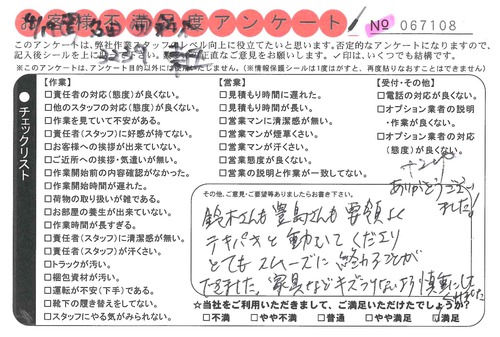 お客様不満足度アンケート
No 067108
このアンケートは、弊社作業スタッフのレベル向上に役立てたいと思います。否定的なアンケートになりますので、
記入後シールを上に
直なご意見をお聞かせ下さい。✓印は、いくつでも結構です。
※このアンケートは、アンケート目的以外には使用いたしません。(※情報保護シールは1度はがすと、再度貼りなおすことはできません)
チェックリスト
【作業】
□責任者の対応(態度)が良くない。
□他のスタッフの対応(態度)が良くない。
□作業を見ていて不安がある。
□責任者(スタッフ)に好感が持てない。
□お客様への挨拶が出来ていない。
□ご近所への挨拶・気遣いが無い。
□作業開始前の内容確認がなかった。
□作業開始時間が遅れた。
□荷物の取り扱いが雑である。
□お部屋の養生が出来ていない。
□作業時間が長すぎる。
□責任者(スタッフ)に清潔感が無い。
□責任者(スタッフ)が汗くさい。
□トラックが汚い。
□梱包資材が汚い。
□運転が不安(下手)である。
□靴下の履き替えをしてない。
□スタッフにやる気がみられない。
【営業】
□見積もり時間に遅れた。
□見積もり時間が長い。
□営業マンに清潔感が無い。
□営業マンが煙草くさい。
□営業マンが汗くさい。
□営業態度が良くない。
□営業の説明と作業が一致してない。
【受付・その他】
□電話の対応が良くない。
□オプション業者の説明
・作業が良くない。
□オプション業者の対応
(態度)が良くない。
ありがとうござい
ました!
その他、ご意見・ご要望等ありましたらお書き下さい。
鈴木さんも豊島さんも要領よく
テキパキと動いてくださり
とてもスムーズに終わることが
できました。家具などキズつけないよう慎重にして
☆当社をご利用いただきまして、ご満足いただけたでしょうか?
□不満 □やや不満 □普通 □やや満足 ☑満足